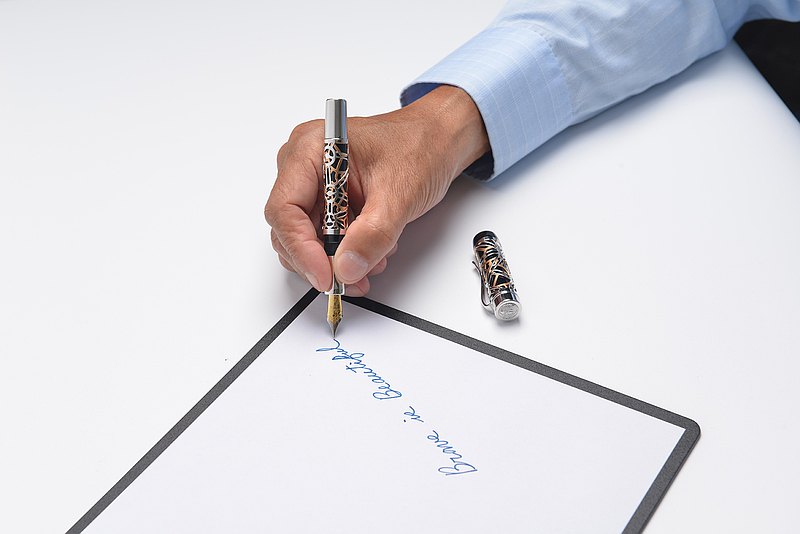 Brave is Beautiful